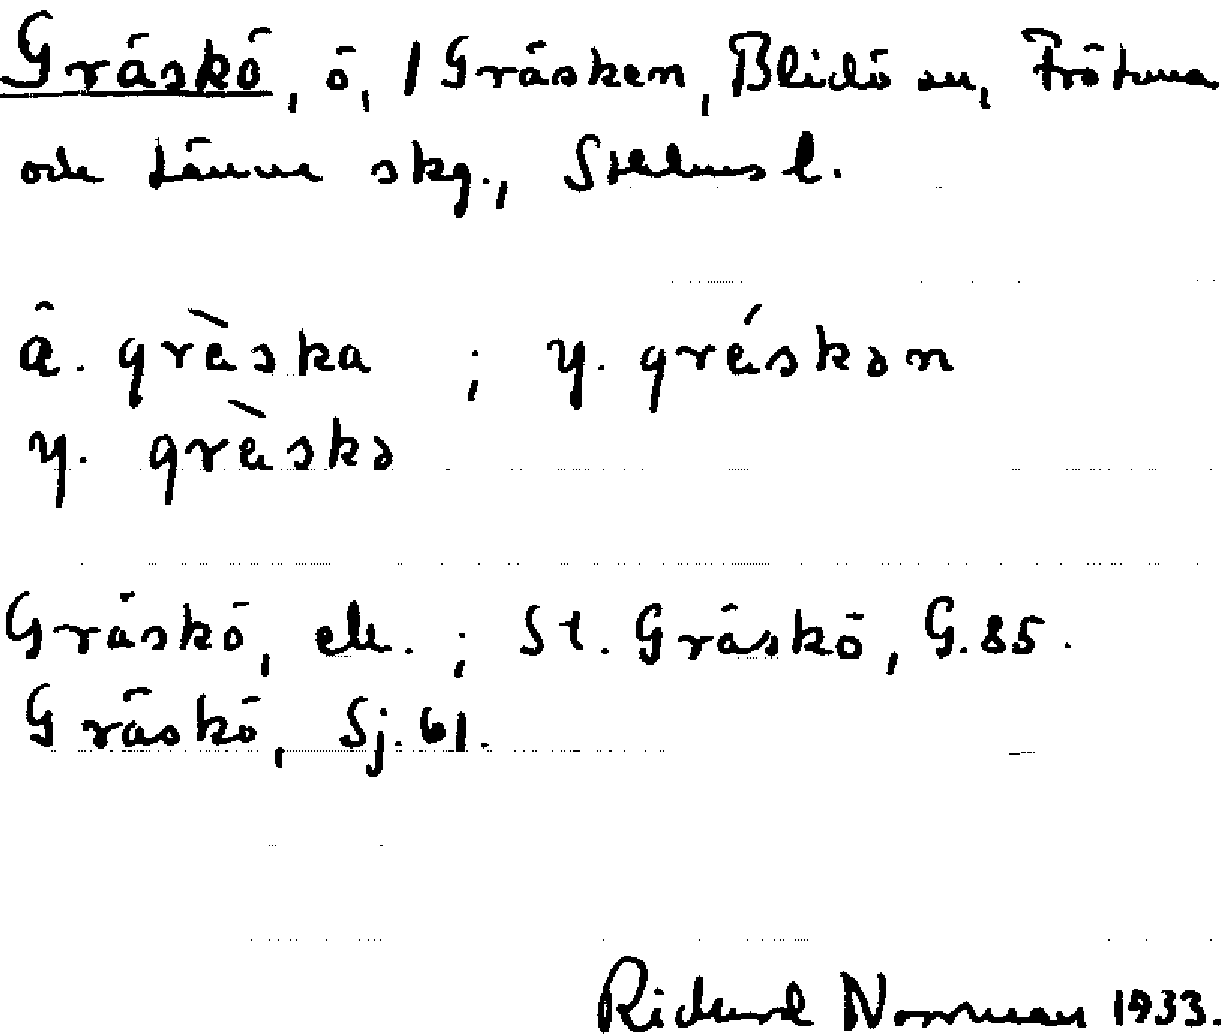 Gräskö, ö, / Gräsken, Blidö sn, Frötuna
och Länna skg., Sthlms l.
ä. grὰska ; y. grάskən
y. grὰskə
Gräskö, ek. ; St. Gräskö, G. 85.
Gräskö, Sj. 61.
Rickard Norrman 1933.